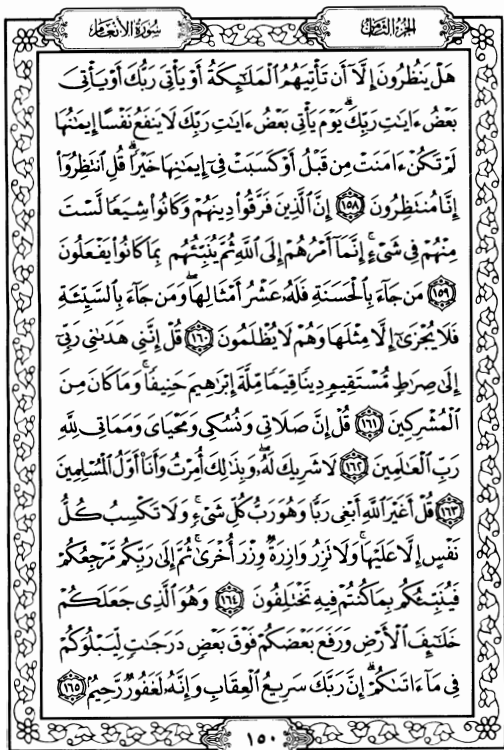 سُورَةُ الأَنْعَام الجُزْءُ الثَّامِن
هَلْ يَنظُرُونَ إِلَّآ أَن تَأْتِيَهُمُ ٱلْمَلَٰٓئِكَةُ أَوْ يَأْتِىَ رَبُّكَ أَوْ يَأْتِىَ
بَعْضُ ءَايَٰتِ رَبِّكَ ۗ يَوْمَ يَأْتِى بَعْضُ ءَايَٰتِ رَبِّكَ لَا يَنفَعُ نَفْسًا إِيمَٰنُهَا
لَمْ تَكُنْ ءَامَنَتْ مِن قَبْلُ أَوْ كَسَبَتْ فِىٓ إِيمَٰنِهَا خَيْرًا ۗ قُلِ ٱنتَظِرُوٓا۟
إِنَّا مُنتَظِرُونَ ١٥٨ إِنَّ ٱلَّذِينَ فَرَّقُوا۟ دِينَهُمْ وَكَانُوا۟ شِيَعًا لَّسْتَ
مِنْهُمْ فِى شَىْءٍ ۚ إِنَّمَآ أَمْرُهُمْ إِلَى ٱللَّهِ ثُمَّ يُنَبِّئُهُم بِمَا كَانُوا۟ يَفْعَلُونَ
١٥٩ مَن جَآءَ بِٱلْحَسَنَةِ فَلَهُۥ عَشْرُ أَمْثَالِهَا ۖ وَمَن جَآءَ بِٱلسَّيِّئَةِ
فَلَا يُجْزَىٰٓ إِلَّا مِثْلَهَا وَهُمْ لَا يُظْلَمُونَ ١٦٠ قُلْ إِنَّنِى هَدَىٰنِى رَبِّىٓ
إِلَىٰ صِرَٰطٍ مُّسْتَقِيمٍ دِينًا قِيَمًا مِّلَّةَ إِبْرَٰهِيمَ حَنِيفًا ۚ وَمَا كَانَ مِنَ
ٱلْمُشْرِكِينَ ١٦١ قُلْ إِنَّ صَلَاتِى وَنُسُكِى وَمَحْيَاىَ وَمَمَاتِى لِلَّهِ
رَبِّ ٱلْعَٰلَمِينَ ١٦٢ لَا شَرِيكَ لَهُۥ ۖ وَبِذَٰلِكَ أُمِرْتُ وَأَنَا۠ أَوَّلُ ٱلْمُسْلِمِينَ
١٦٣ قُلْ أَغَيْرَ ٱللَّهِ أَبْغِى رَبًّا وَهُوَ رَبُّ كُلِّ شَىْءٍ ۚ وَلَا تَكْسِبُ كُلُّ
نَفْسٍ إِلَّا عَلَيْهَا ۚ وَلَا تَزِرُ وَازِرَةٌ وِزْرَ أُخْرَىٰ ۚ ثُمَّ إِلَىٰ رَبِّكُم مَّرْجِعُكُمْ
فَيُنَبِّئُكُم بِمَا كُنتُمْ فِيهِ تَخْتَلِفُونَ ١٦٤ وَهُوَ ٱلَّذِى جَعَلَكُمْ
خَلَٰٓئِفَ ٱلْأَرْضِ وَرَفَعَ بَعْضَكُمْ فَوْقَ بَعْضٍ دَرَجَٰتٍ لِّيَبْلُوَكُمْ
فِى مَآ ءَاتَىٰكُمْ ۗ إِنَّ رَبَّكَ سَرِيعُ ٱلْعِقَابِ وَإِنَّهُۥ لَغَفُورٌ رَّحِيمٌ ١٦٥
١٥٠